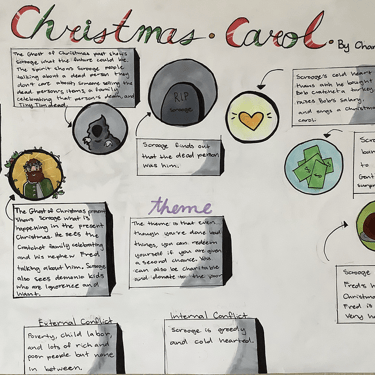 Christmas. Carol. By Char
The Ghost of Christmas past shows
Scrooge what the future could be.
The spirit shows Scrooge people
talking about a dead person they
don't care about, someone selling the
dead person's items, a family
celebrating that person's death, and
Tiny Tim dead.
RIP
Scrooge
Scrooge finds out
that the dead person
was him.
Scrooge's cold heart
thaws ash he bought
Bob Cratchet a turkey,
raises Bob's salary,
and sings a Christmas
carol.
The Ghost of Christmas present
shows Scrooge what is
happening in the present
Christmas. He sees the
Cratchet family celebrating
and his nephew Fred
talking about him. Scrooge
also sees demonic kids
who are Ignorence and
Want.
theme
The theme is that even
though you've done bad
things, you can redeem
yourself if you are given
a second chance. You
can also be charitable
and donate to the poor
External Conflict
Poverty, child labor,
and lots of rich and
poor people but none
in between.
Internal Conflict
Scrooge is greedy
and cold hearted.
Scrooge
Fred's h
Christmas
Fred is
Very h